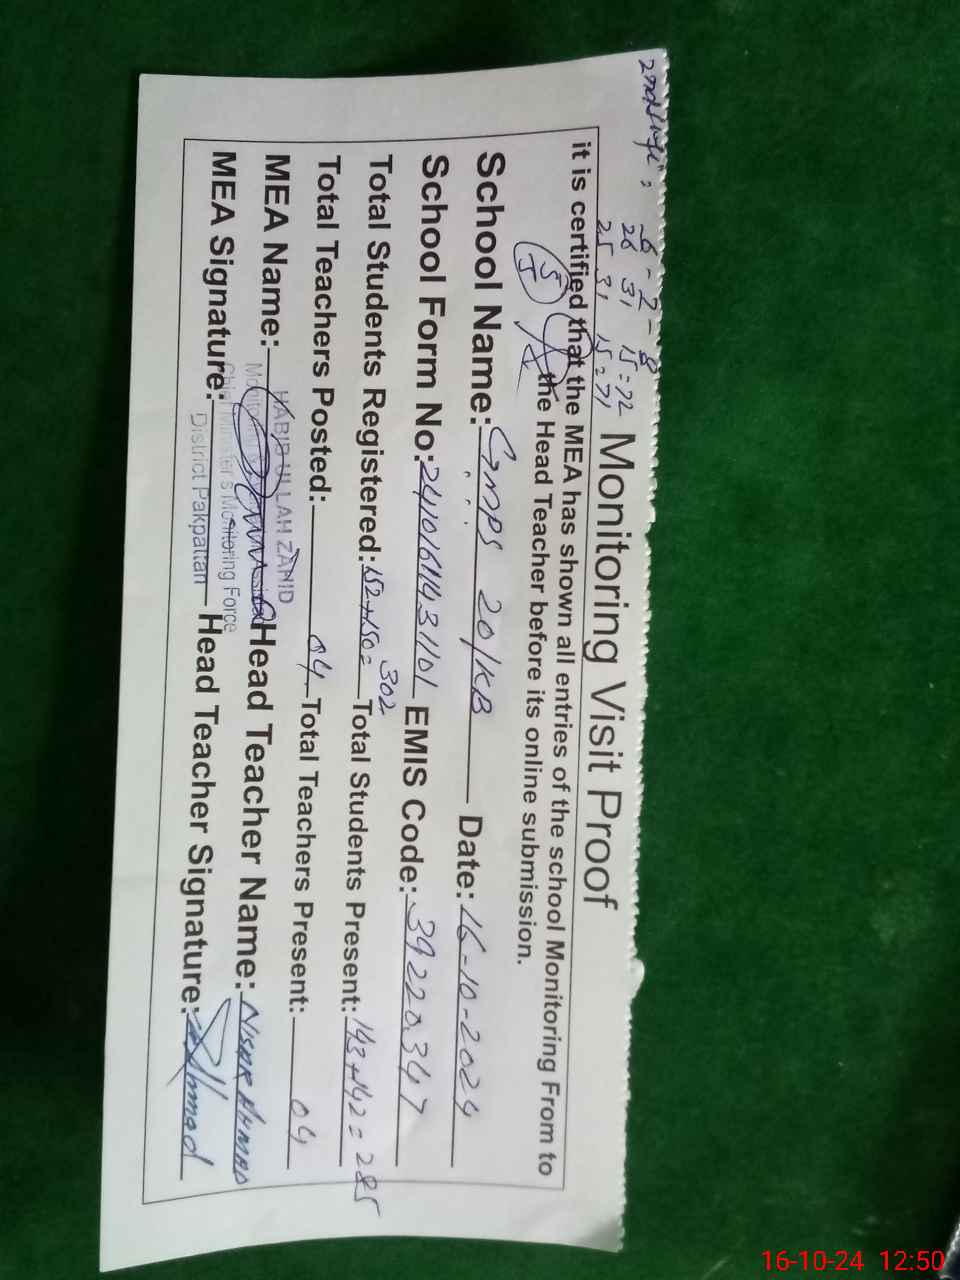 6 - 2 = 8
26 31 15 = 72
25 31 15 = 71
Monitoring Visit Proof
it is certified that the MEA has shown all entries of the school Monitoring From to
the Head Teacher before its online submission.
School Name: GMPS 20/KB Date: 16-10-2024
School Form No: 24101611431101 EMIS Code: 39220347
Total Students Registered: 152+150= 302 Total Students Present: 143+142= 285
Total Teachers Posted: 04 Total Teachers Present: 04
MEA Name: HABIB ULLAH ZAHID Head Teacher Name: NISAR AHMAD
MEA Signature: Chief Minister's Monitoring Force Head Teacher Signature: Ahmad
District Pakpattan
16-10-24 12:50